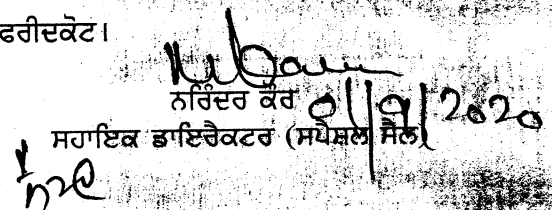 ਫਰੀਦਕੋਟ।
ਨਰਿੰਦਰ ਕੌਰ
01/9/2020
ਸਹਾਇਕ ਡਾਇਰੈਕਟਰ (ਸਪੈਸ਼ਲ ਸੈੱਲ)